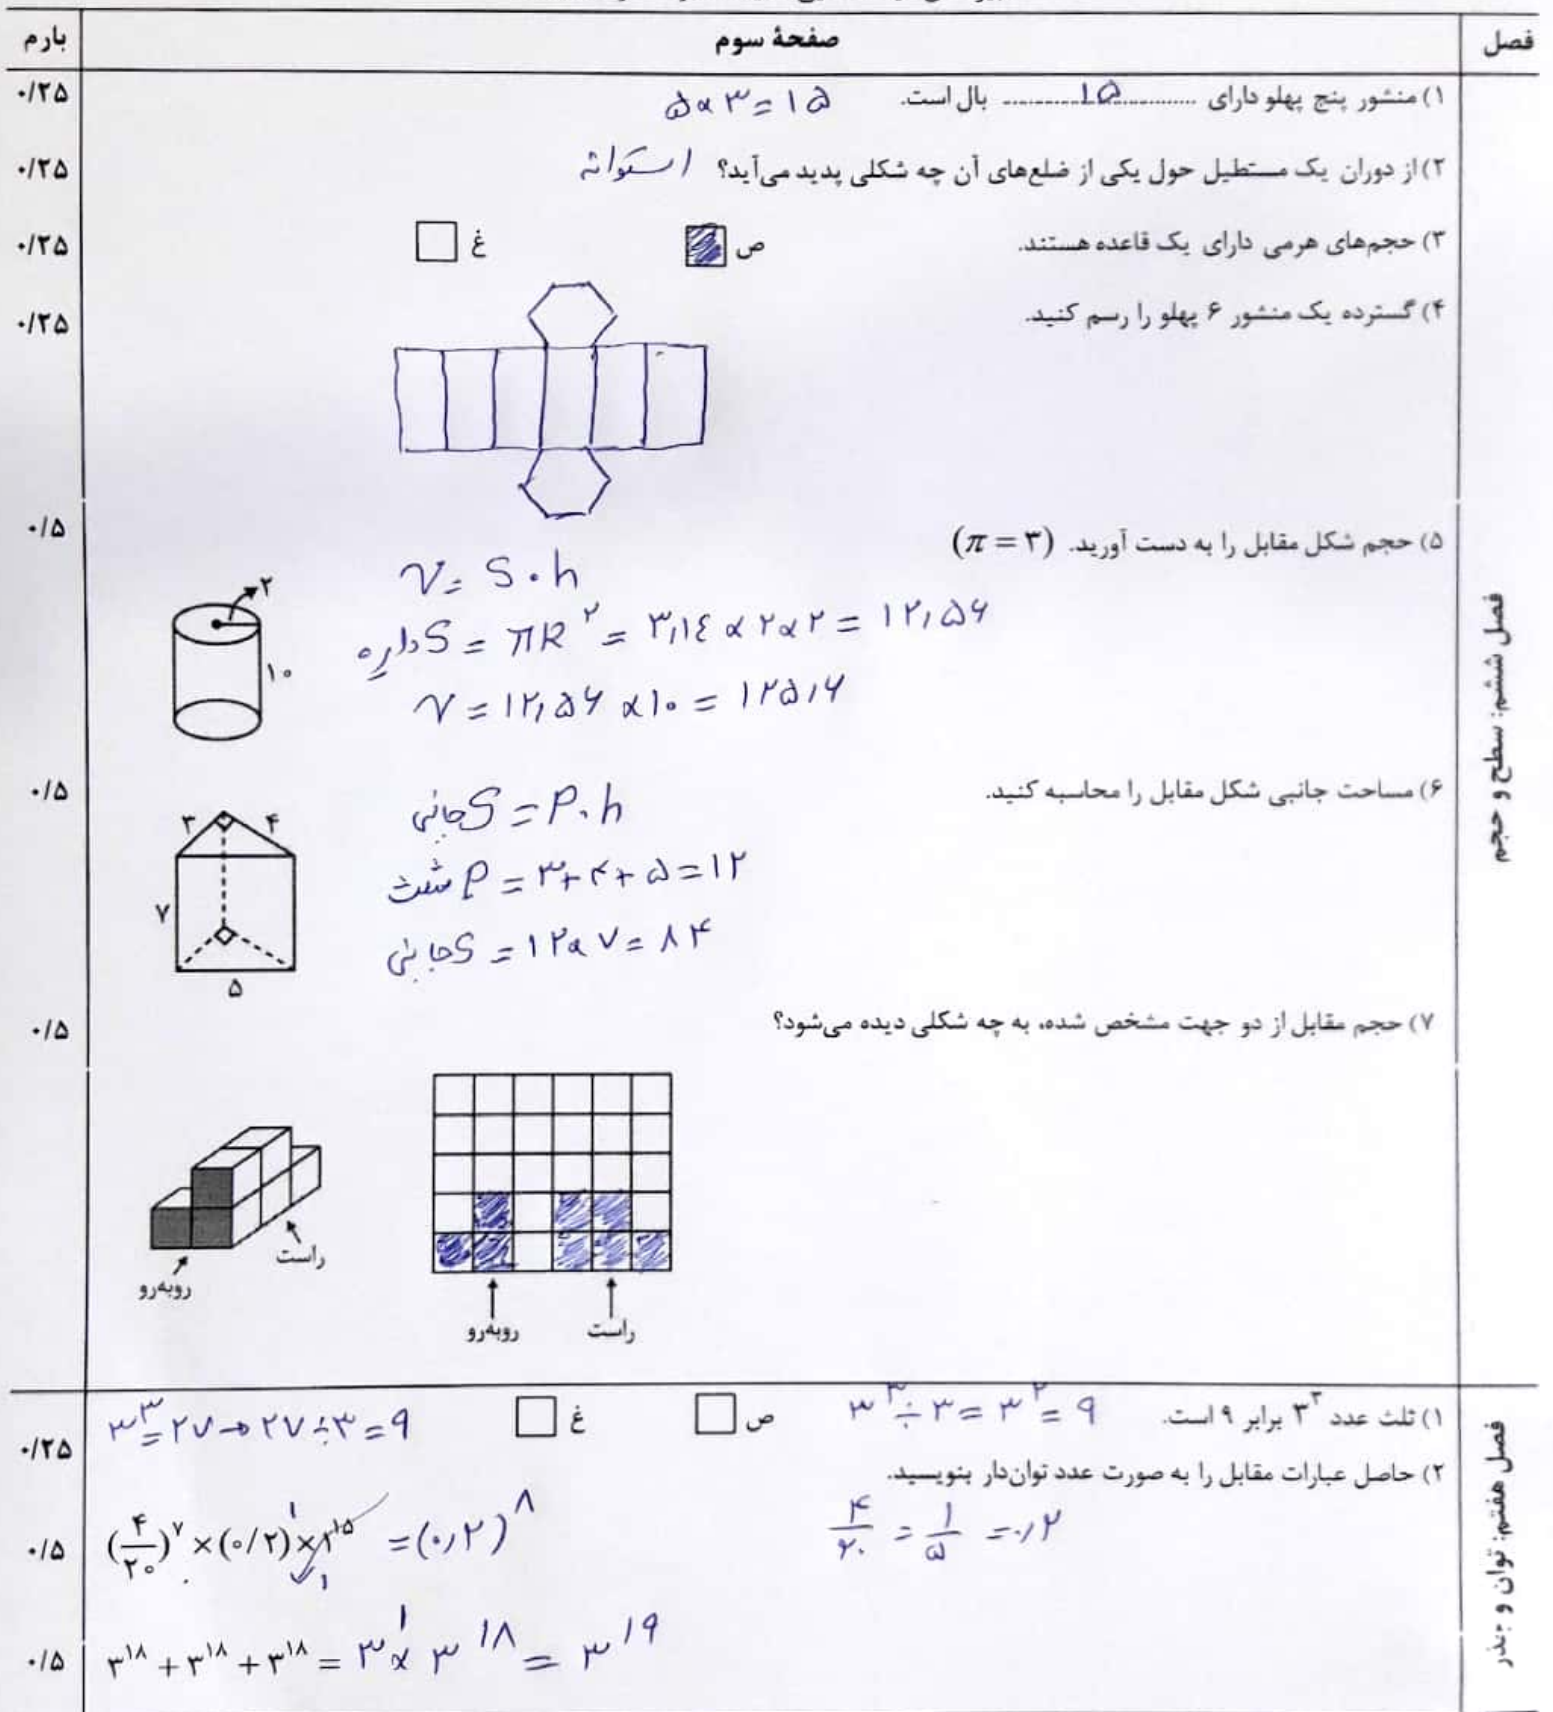 فصل صفحهٔ سوم بارم
۱) منشور پنج پهلو دارای ........ ۱۵ ........ بال است. ۵ × ۳ = ۱۵ ۰/۲۵
۲) از دوران یک مستطیل حول یکی از ضلع‌های آن چه شکلی پدید می‌آید؟ استوانه ۰/۲۵
۳) حجم‌های هرمی دارای یک قاعده هستند. ص غ ۰/۲۵
۴) گسترده یک منشور ۶ پهلو را رسم کنید. ۰/۲۵
فصل ششم: سطح و حجم
۵) حجم شکل مقابل را به دست آورید. (π = ۳) ۰/۵
V = S . h
S دایره = πR² = ۳,۱۴ × ۲ × ۲ = ۱۲,۵۶
V = ۱۲,۵۶ × ۱۰ = ۱۲۵,۶
۲
۱۰
۶) مساحت جانبی شکل مقابل را محاسبه کنید. ۰/۵
S جانبی = P . h
P مثلث = ۳ + ۴ + ۵ = ۱۲
S جانبی = ۱۲ × ۷ = ۸۴
۳ ۴
۷
۵
۷) حجم مقابل از دو جهت مشخص شده، به چه شکلی دیده می‌شود؟ ۰/۵
راست
روبه‌رو
روبه‌رو راست
فصل هفتم: توان و جذر
۱) ثلث عدد ۳³ برابر ۹ است. ۳³ ÷ ۳ = ۳² = ۹ ص غ ۳³ = ۲۷ → ۲۷ ÷ ۳ = ۹ ۰/۲۵
۲) حاصل عبارات مقابل را به صورت عدد توان‌دار بنویسید.
(۴/۲۰)^۷ × (۰/۲)^۱ × ۱^۱۵ = (۰,۲)^۸ ۴/۲۰ = ۱/۵ = ۰,۲ ۰/۵
۱
۳^۱۸ + ۳^۱۸ + ۳^۱۸ = ۳^۱ × ۳^۱۸ = ۳^۱۹ ۰/۵